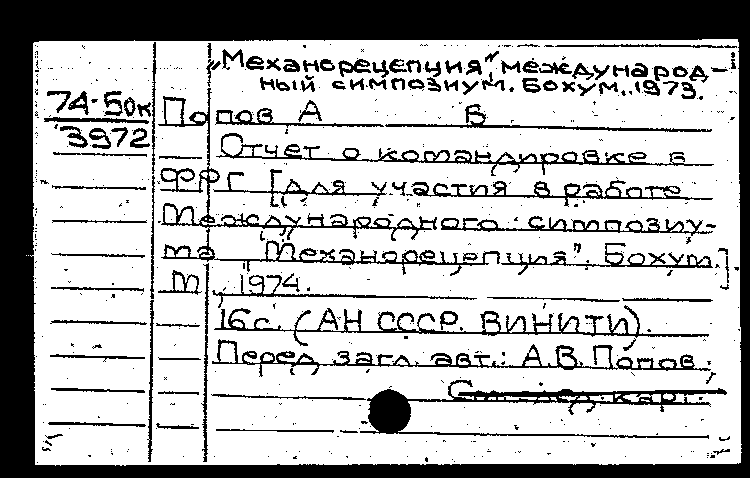 „Механорецепция", международ-
ный симпозиум. Бохум, 1973.
74-50к
3972
Попов А В
Отчет о командировке в
ФРГ [для участия в работе
Международного симпозиу-
ма "Механорецепция". Бохум.]
М., 1974.
16с. (АН СССР. ВИНИТИ).
Перед загл. авт.: А.В. Попов.
См. след. карт.